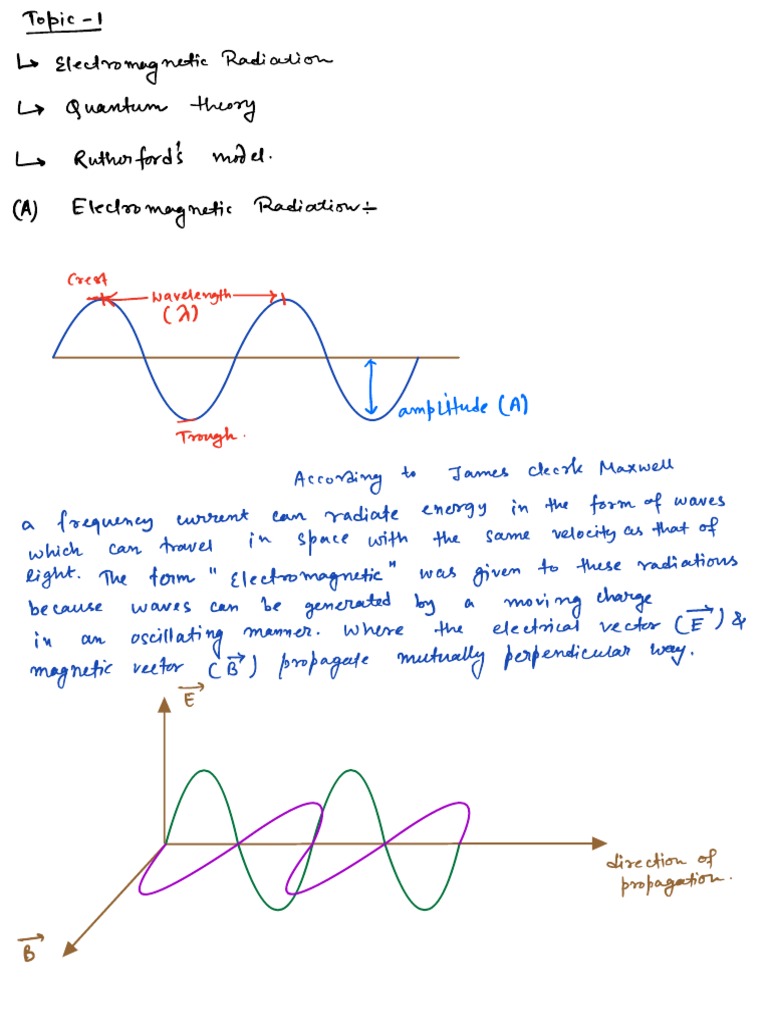 Topic -1
↳ Electromagnetic Radiation
↳ Quantum theory
↳ Rutherford's model.
(A) Electromagnetic Radiation:-
Crest
wavelength
(λ)
amplitude (A)
Trough.
According to James clerk Maxwell
a frequency current can radiate energy in the form of waves
which can travel in space with the same velocity as that of
light. The form "Electromagnetic" was given to these radiations
because waves can be generated by a moving charge
in an oscillating manner. Where the electrical vector (E⃗) &
magnetic vector (B⃗) propagate mutually perpendicular way.
E⃗
direction of
propagation.
B⃗